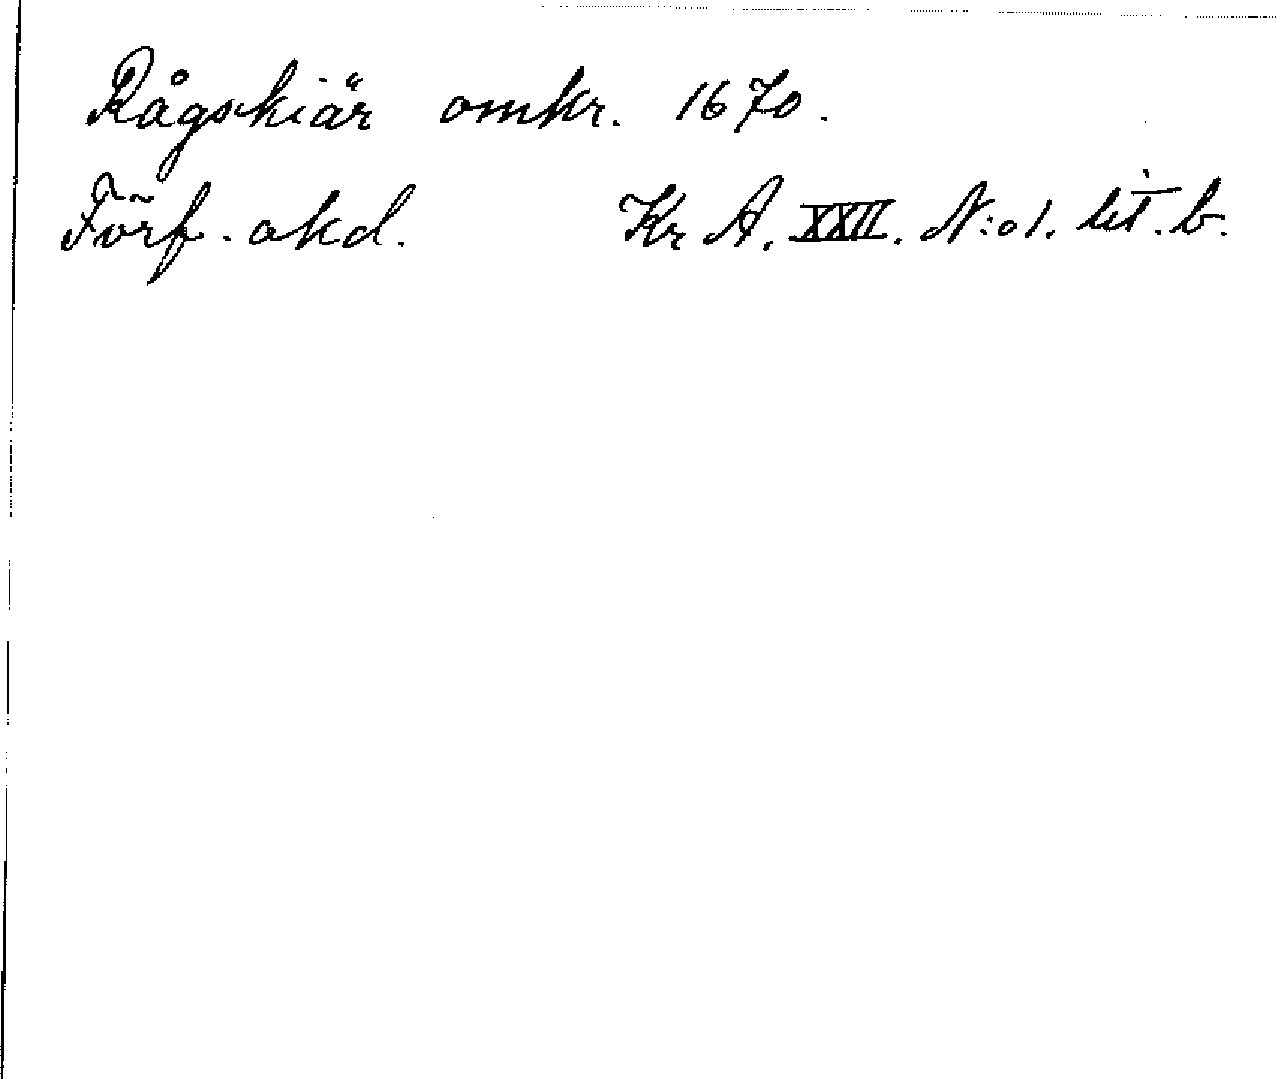 Rågskiär omkr. 1670.
Förf. okd. Kr A. XXII. N:o 1. lit. b.